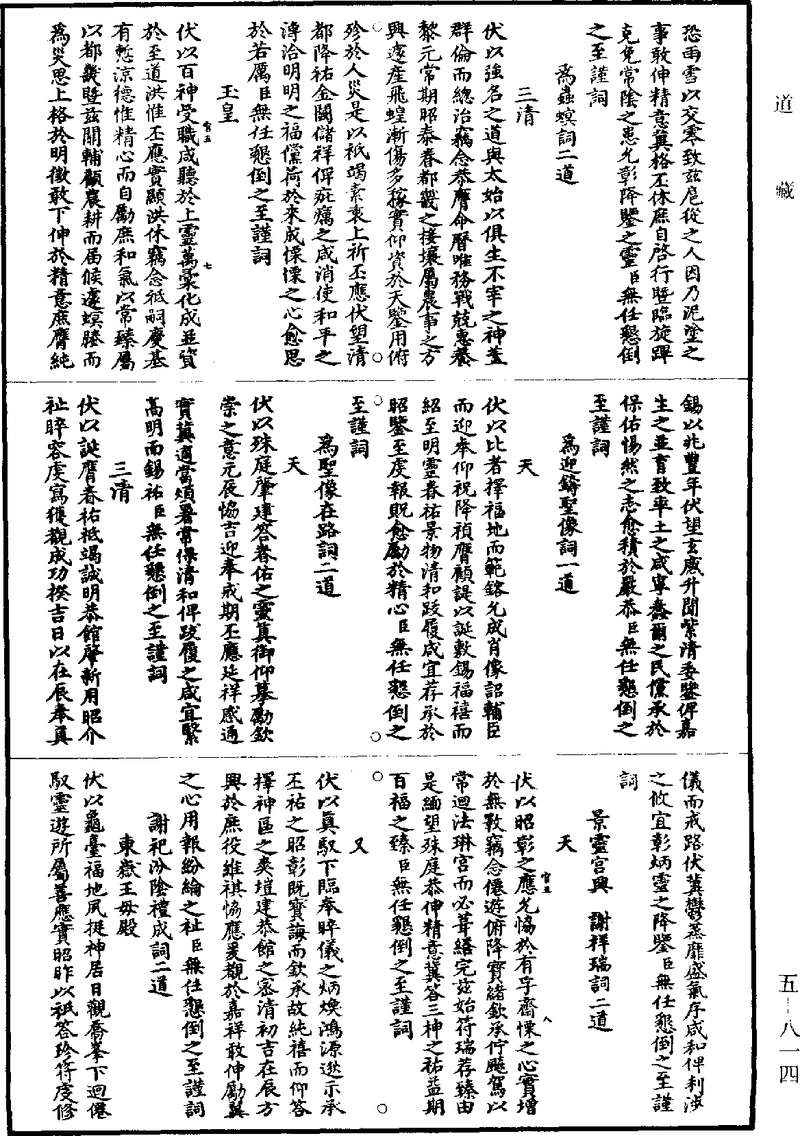 道藏
恐雨雪以交零致茲扈從之人因乃泥塗之
事敢伸精意冀格丕休庶自啓行暨臨旋蹕
克免常陰之患允彰降鑒之靈臣無任懇倒
之至謹詞
為蟲螟詞二道
三清
伏以強名之道與太始以俱生不宰之神蓋
群倫而總治竊念恭膺命曆唯務戰兢惠養
黎元常期昭泰春都畿之接壤屬農事之方
興遽產飛蝗漸傷多稼實仰資於天鑒用俯
殄於人災是以祇竭素衷上祈丕應伏望清
都降祐金闕儲祥俾疵癘之咸消使和平之
溥洽明明之福儻荷於來成慄慄之心愈思
於若厲臣無任懇倒之至謹詞
玉皇
伏以百神受職咸聽於上靈萬彙化成並資
於至道洪惟丕應實顯洪休竊念祇嗣慶基
有慙涼德惟精心而自勵庶和氣以常臻屬
以都畿暨茲關輔顧農耕而屆候遽螟螣而
為災思上格於明徵敢下伸於精意庶膺純
官五
七
錫以兆豐年伏望玄感升聞紫清委鑒俾嘉
生之並育致率土之咸寧蠢爾之民儻承於
保佑惕然之志愈積於嚴恭臣無任懇倒之
至謹詞
為迎鑄聖像詞一道
天
伏以比者擇福地而範鎔允成肖像詔輔臣
而迎奉仰祝降禎膺顧諟以誕敷錫福禧而
紹至明靈春祐景物清和跋履咸宜荐承於
昭鑒至虔報貺愈勵於精心臣無任懇倒之
至謹詞
為聖像在路詞二道
天
伏以殊庭肇建答眷佑之靈真御仰慕勵欽
崇之意元辰恊吉迎奉戒期丕應延祥感通
實冀適當煩暑常保清和俾跋履之咸宜繄
高明而錫祐臣無任懇倒之至謹詞
三清
伏以誕膺眷祐祗竭誠明恭館肇新用昭介
祉睟容虔寫獲觀成功揆吉日以在辰奉真
儀而戒路伏冀鬱蒸靡盛氣序咸和俾利涉
之攸宜彰炳靈之降鑒臣無任懇倒之至謹
詞
景靈宮興 謝祥瑞詞二道
天
伏以昭彰之應允恊於有孚齋慄之心實增
於無斁竊念僊遊俯降寶緒欽承佇飈駕以
常迴法琳宮而必葺繕完茲始符瑞荐臻由
是緬望殊庭恭伸精意冀荅三神之祐益期
百福之臻臣無任懇倒之至謹詞
官五
八
又
伏以真馭下臨奉睟儀之炳煥鴻源逖示承
丕祐之昭彰既寶誨而欽承故純禧而仰答
擇神區之爽塏建恭館之密清初吉在辰方
興於庶役維祺恊應爰觀於嘉祥敢伸勵翼
之心用報紛綸之祉臣無任懇倒之至謹詞
謝祀汾陰禮成詞二道
東嶽王母殿
伏以龜臺福地夙挺神居日觀喬峯下迴僊
馭靈遊所屬善應實昭昨以祇答珍符虔修
五–八一四